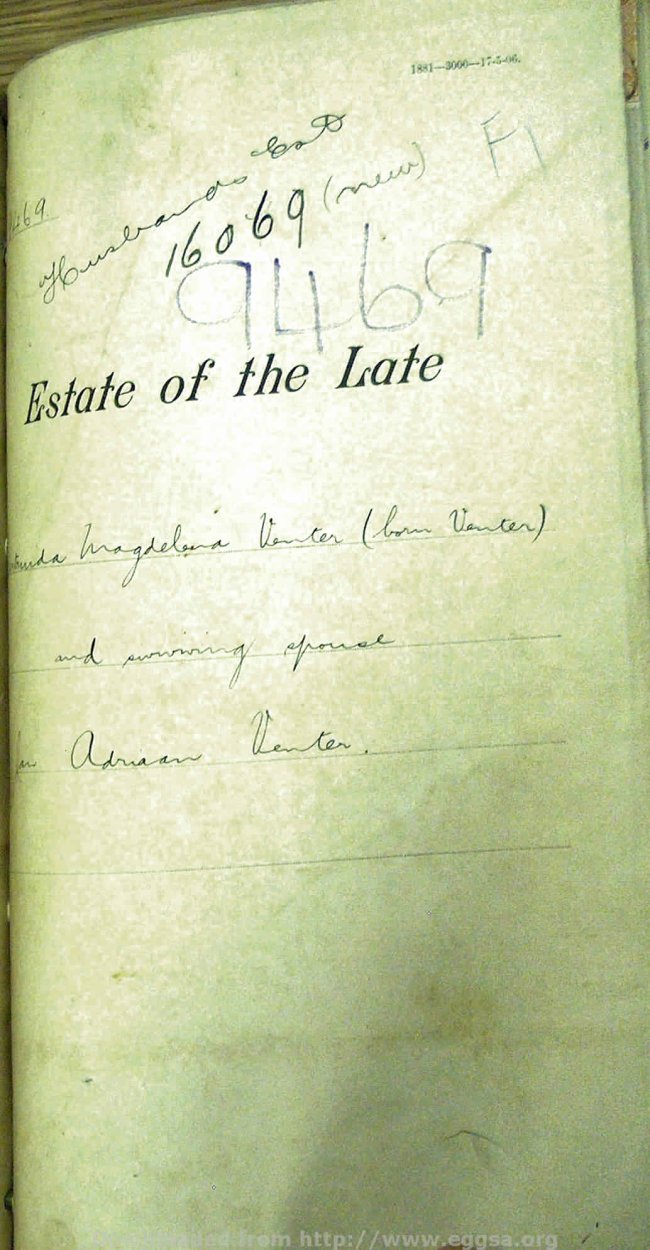 1881—3000—17-5-06.
469
Husbands Est
16069 (new)
F1
9469
Estate of the Late
Magdelena Venter (born Venter)
and surviving spouse
Adriaan Venter.
from http://www.eggsa.org